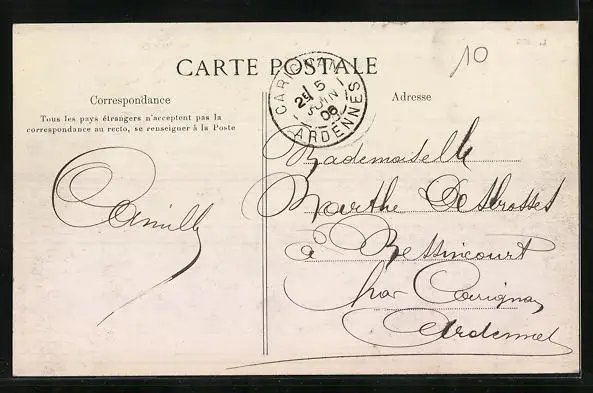 10
CARTE POSTALE
CARIGNAN
ARDENNES
5
JUIN
08
Correspondance
Adresse
Tous les pays étrangers n'acceptent pas la
correspondance au recto, se renseigner à la Poste
Camille
Mademoiselle
Marthe
à
par Carignan
Ardennes